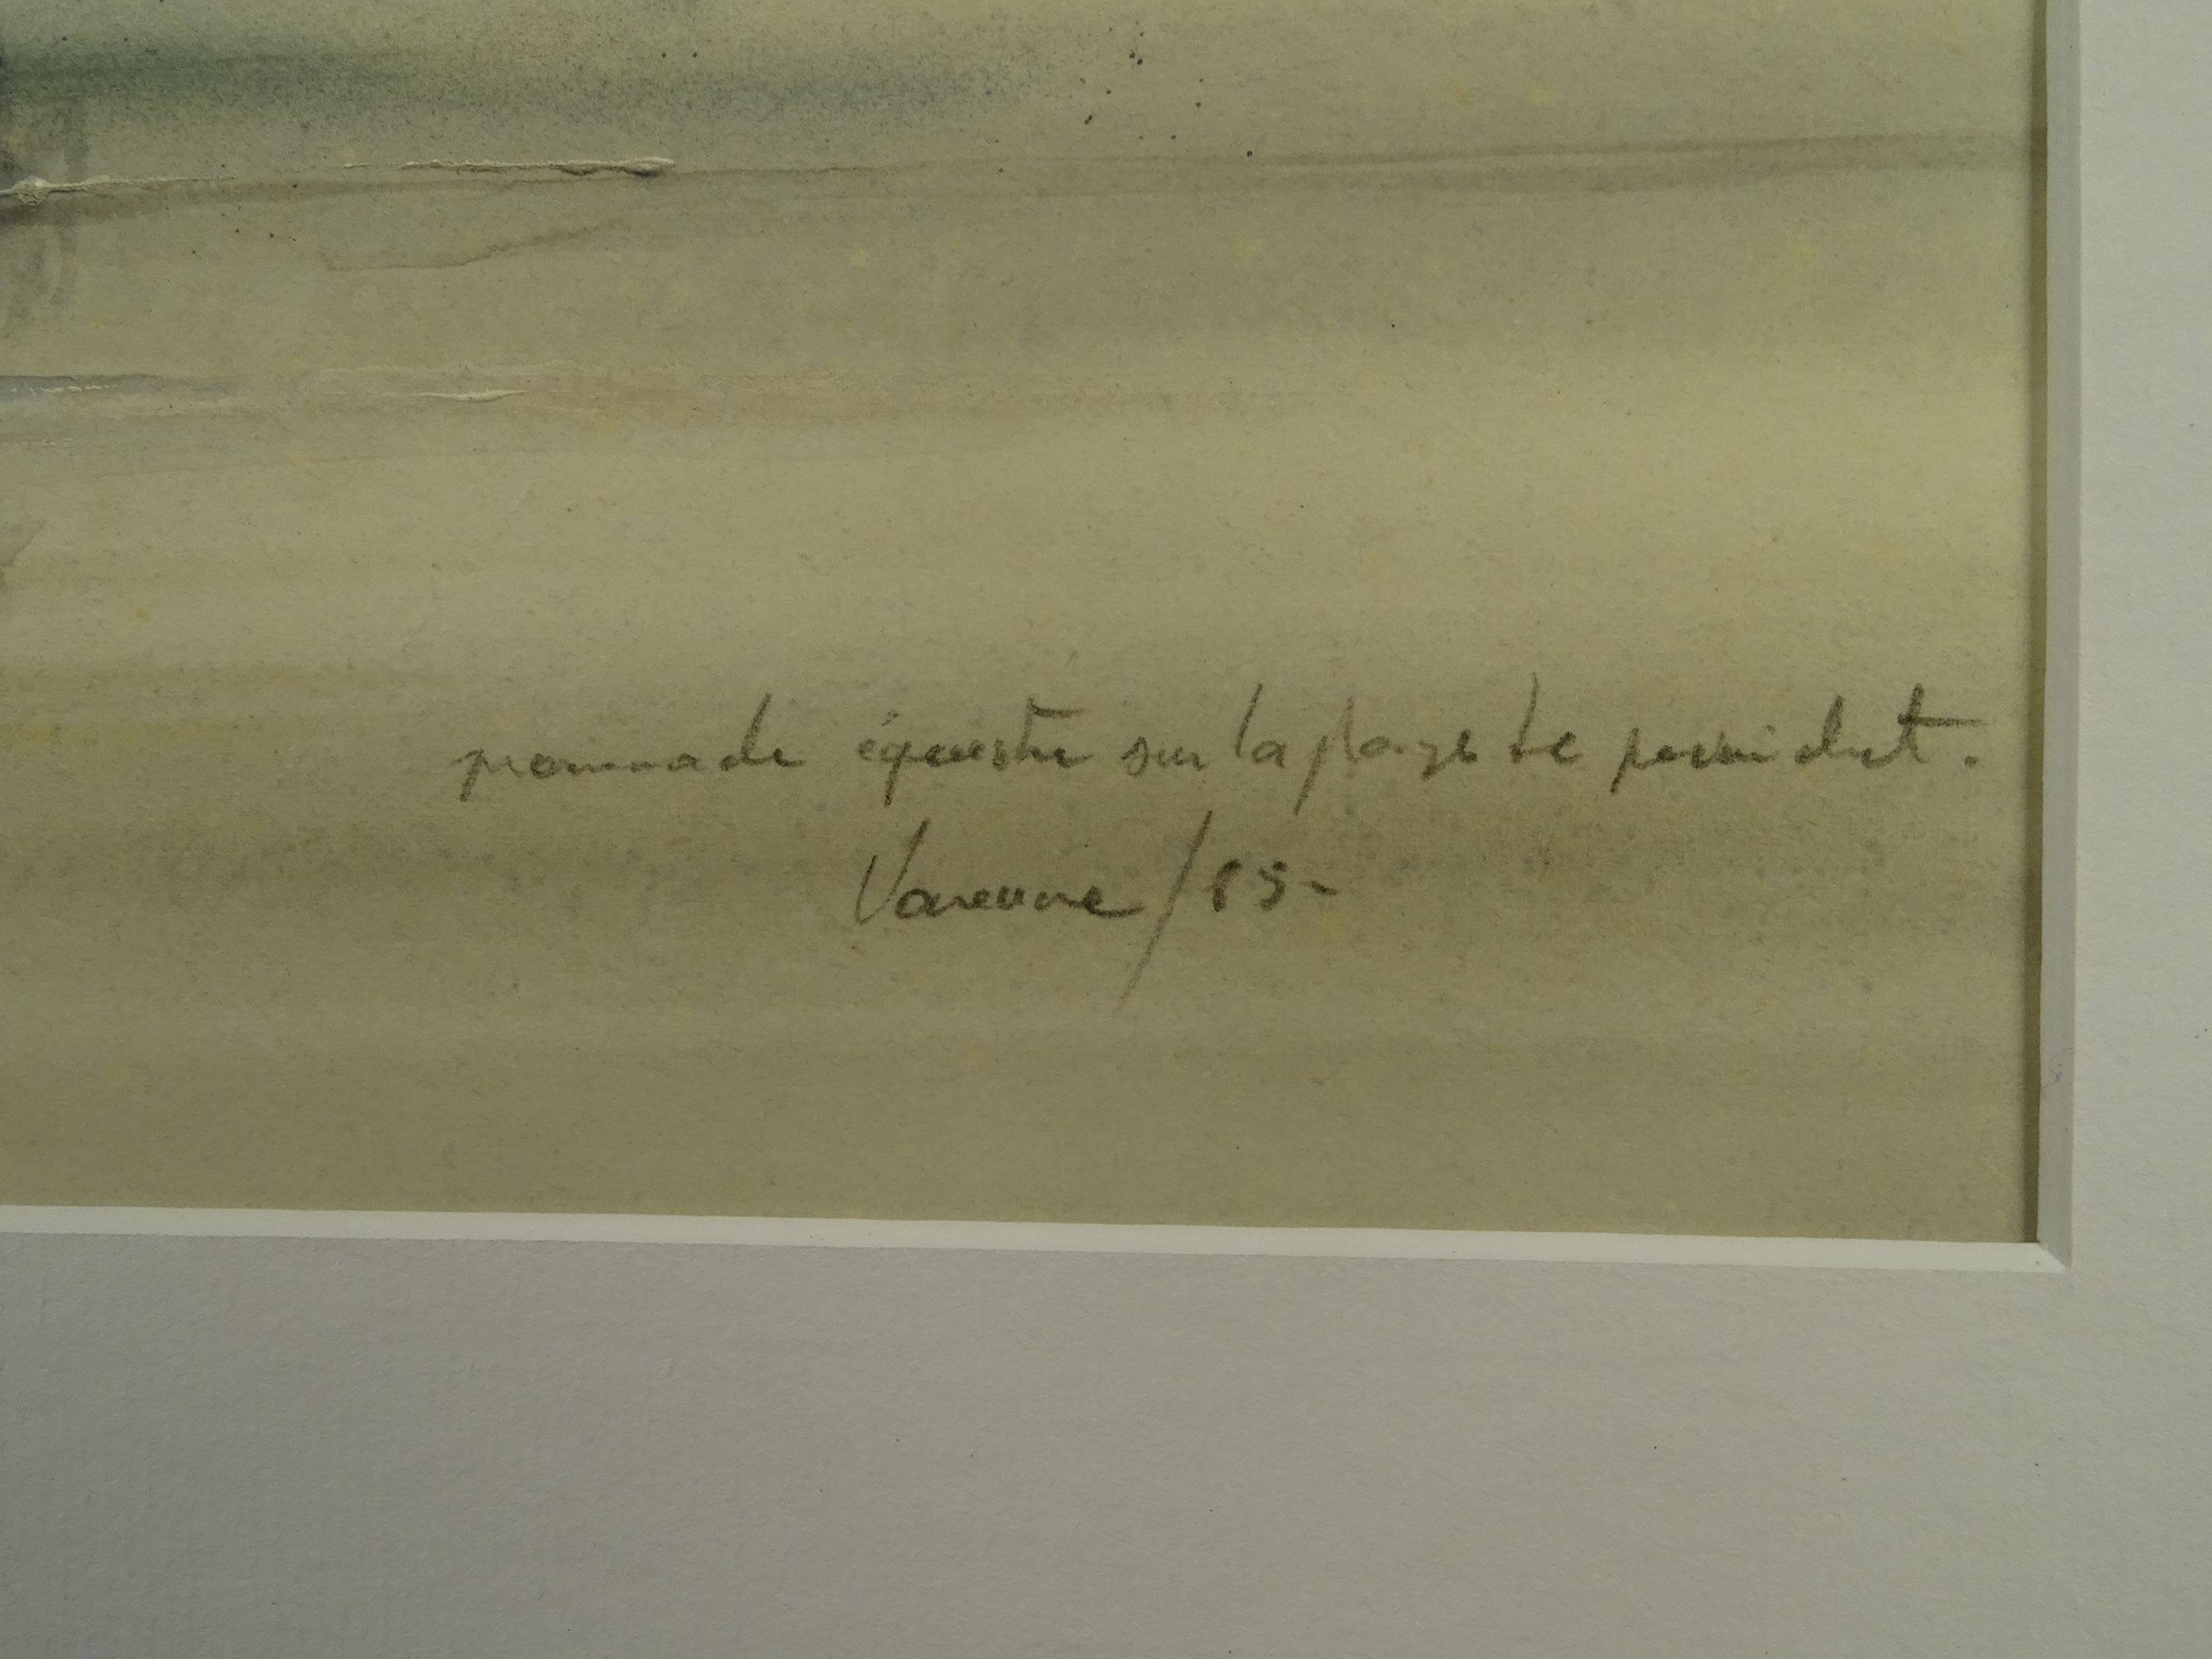 promenade équestre sur la plage de
Varenne / 85-